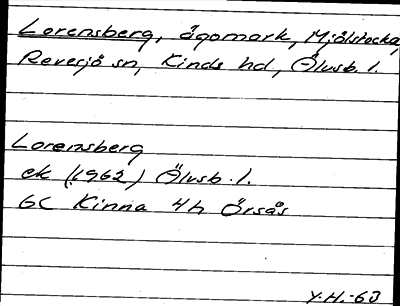 Lorensberg, ägomark, Mjölstocka,
Revesjö sn, Kinds hd, Älvsb. l.
Lorensberg
ek (1962) Älvsb. l.
GC Kinna 4h Örsås
Y.H.-63